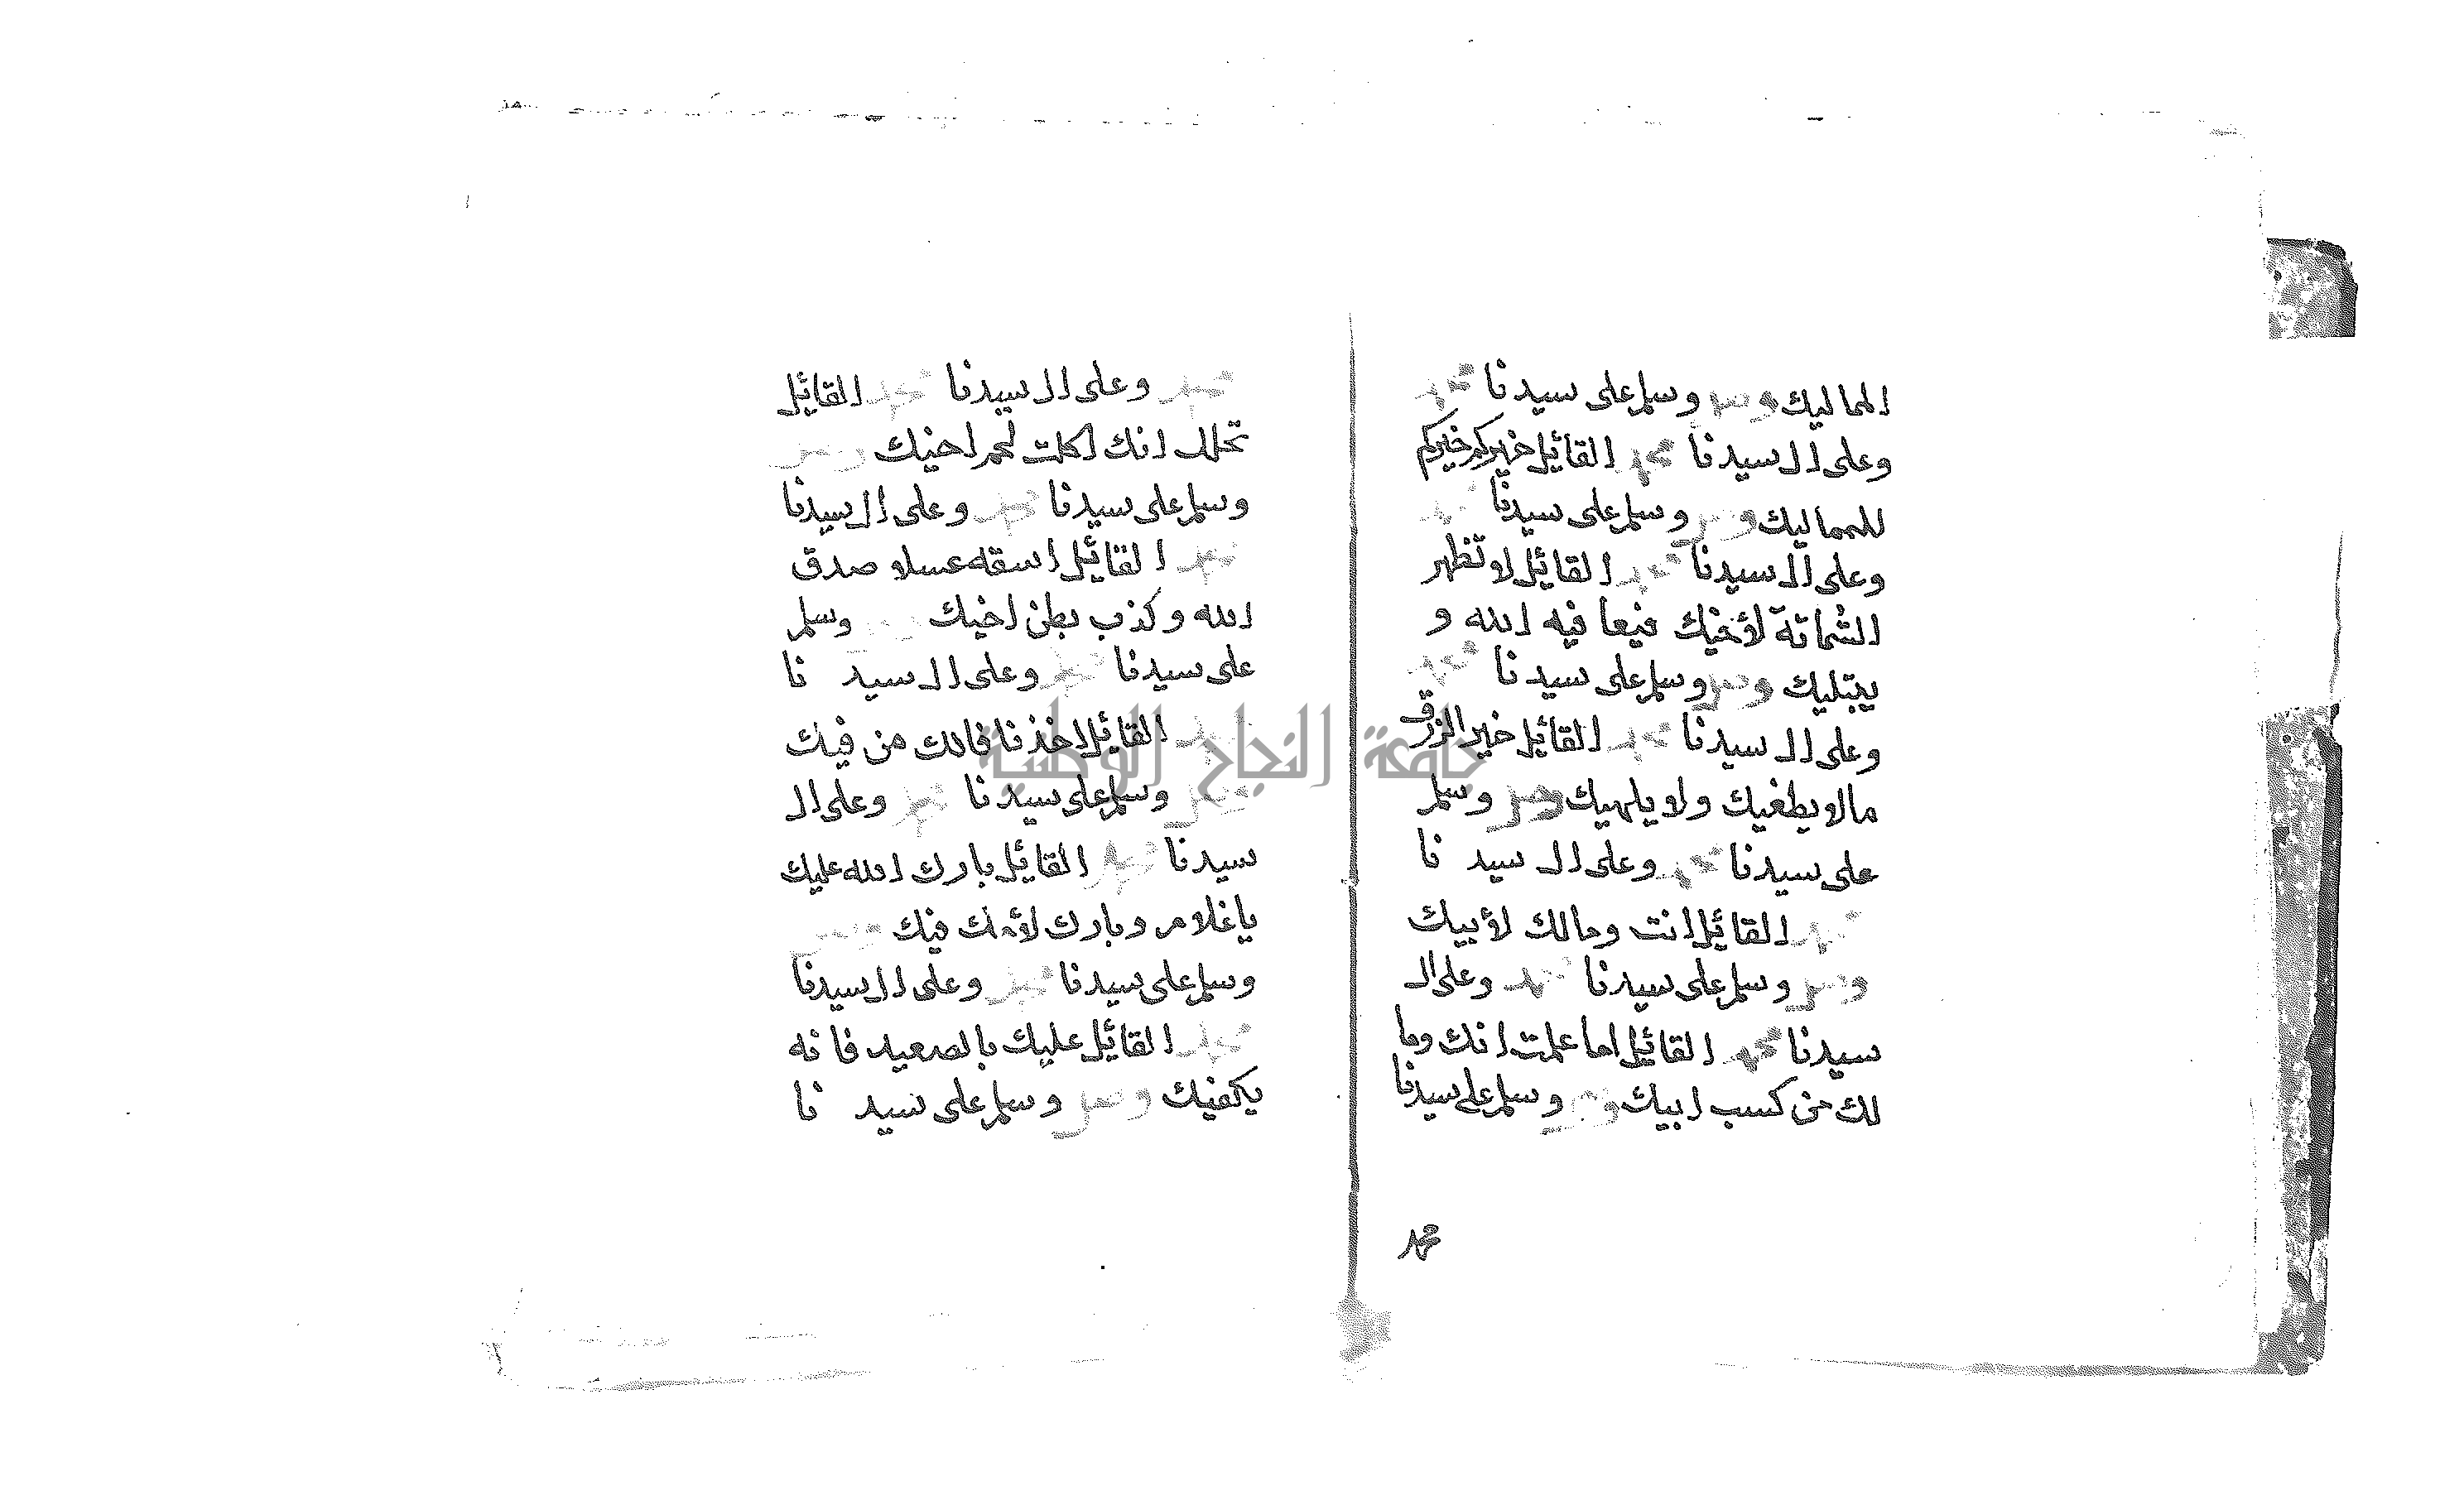 المماليك وصل وسلم على سيدنا محمد
وعلى ال سيدنا محمد القائل خيركم خيركم
للمماليك وصل وسلم على سيدنا محمد
وعلى ال سيدنا محمد القائل لا تظهر
الشماتة لأخيك فيعا فيه الله و
يبتليك وصل وسلم على سيدنا محمد
وعلى ال سيدنا محمد القائل خير الرزق
ما لا يطغيك ولا يلهيك وصل وسلم
على سيدنا محمد وعلى ال سيد نا
محمد القائل انت ومالك لأبيك
وصل وسلم على سيدنا محمد وعلى ال
سيدنا محمد القائل اما علمت انك وما
لك من كسب ابيك وصل وسلم على سيدنا
محمد
محمد وعلى ال سيدنا محمد القائل
تخلل انك اكلت لحم اخيك وصل
وسلم على سيدنا محمد وعلى ال سيدنا
محمد القائل اسقه عسلا صدق
الله وكذب بطن اخيك وصل وسلم
على سيدنا محمد وعلى ال سيد نا
محمد القائل اخذنا فالك من فيك
وصل وسلم على سيدنا محمد وعلى ال
سيدنا محمد القائل بارك الله عليك
يا غلام وبارك لأمك فيك وصل
وسلم على سيدنا محمد وعلى ال سيدنا
محمد القائل عليك بالصعيد فانه
يكفيك وصل وسلم على سيد نا
جامعة النجاح الوطنية